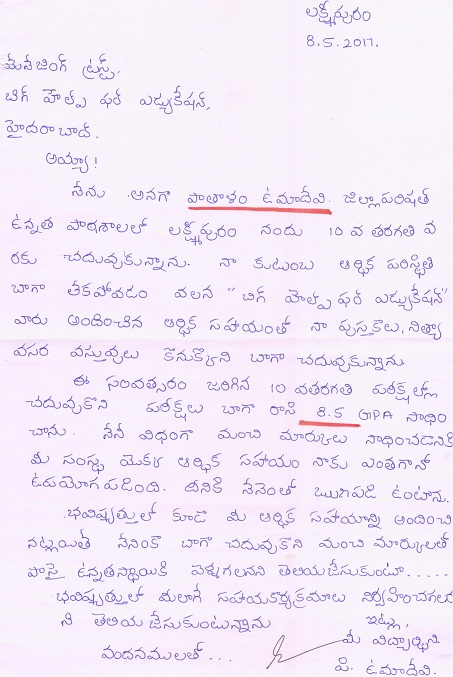 లక్ష్మీపురం
8.5.2017.
మేనేజింగ్ ట్రస్ట్,
బిగ్ హెల్ప్ ఫర్ ఎడ్యుకేషన్,
హైదరాబాద్.
అయ్యా!
నేను అనగా పాతాళం ఉమాదేవి. జిల్లాపరిషత్
ఉన్నత పాఠశాలలో లక్ష్మీపురం నందు 10 వ తరగతి వ
రకు చదువుకున్నాను. నా కుటుంబ ఆర్థిక పరిస్థితి
బాగా లేకపోవడం వలన "బిగ్ హెల్ప్ ఫర్ ఎడ్యుకేషన్"
వారు అందించిన ఆర్థిక సహాయంతో నా పుస్తకాలు, నిత్యా
వసర వస్తువులు కొనుక్కొని బాగా చదువుకున్నాను
ఈ సంవత్సరం జరిగిన 10 వతరగతి పరీక్షల్లో
చదువుకొని పరీక్షలు బాగా రాసి 8.5 GPA సాధిం
చాను. నేనీ విధంగా మంచి మార్కులు సాధించడానికి
మీ సంస్థ యొక్క ఆర్థిక సహాయం నాకు ఎంతగానో
ఉపయోగపడింది. దీనికి నేనెంతో ఋణపడి ఉంటాను.
భవిష్యత్తులో కూడా మీ ఆర్థిక సహాయాన్ని అందించి
నట్లయితే నేనింకా బాగా చదువుకొని మంచి మార్కులతో
పాసై ఉన్నతస్థాయికి వెళ్ళగలనని తెలియజేసుకుంటూ.....
భవిష్యత్తులో మీలాగే సహాయకార్యక్రమాలు నిర్వహించగలన
ని తెలియజేసుకుంటున్నాను
ఇట్లు,
వందనములతో...
మీ విద్యార్థిని
పి. ఉమాదేవి.